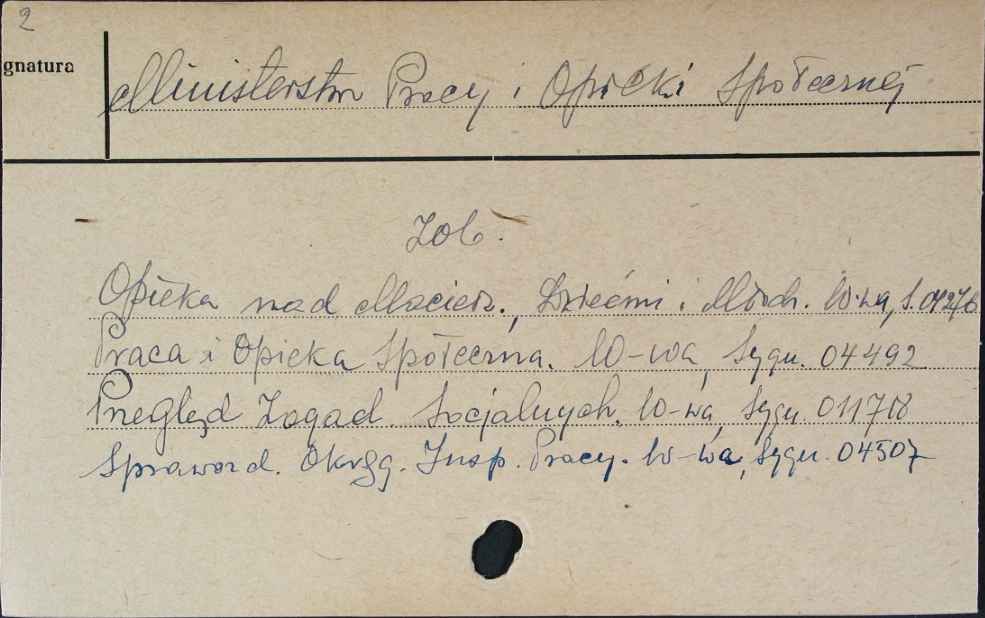 2
gnatura
Ministerstwo Pracy i Opieki Społecznej
Zob.
Opieka nad Macierz., Dziećmi i Młodz. W-wa, S. 04276
Praca i Opieka Społeczna. W-wa, Sygn. 04492
Przegląd Zagad. Socjalnych. W-wa, Sygn. 011718
Sprawozd. Okręg. Insp. Pracy. W-wa, Sygn. 04507